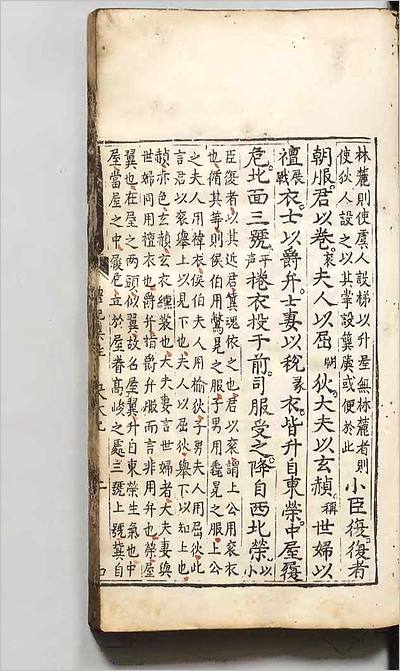 林麓則使虞人設梯以升屋無林麓者則
使狄人設之以其掌設簨虡或便於此
小臣復復者
朝服君以卷袞夫人以屈闕狄大夫以玄赬稱世婦以
襢展戰衣士以爵弁士妻以稅彖衣皆升自東榮中屋履
危北面三號平聲捲衣投于前司服受之降自西北榮以小
臣復者以其近君冀魂依之也君以袞謂上公用袞衣
也循其等則侯伯用鷩冕之服子男用毳冕之服上公
之夫人用褘衣侯伯夫人用揄狄子男夫人用屈狄此
言君以袞舉上以見下也夫人以屈狄舉下以知上也
赬赤色玄赬玄衣纁裳也大夫妻言世婦者大夫妻與
世婦同用襢衣也爵弁指爵弁服而言非用弁也榮屋
翼也在屋之兩頭似翼故名屋翼升自東榮生氣也中
屋當屋之中履危立於屋脊高峻之處三號上號冀自